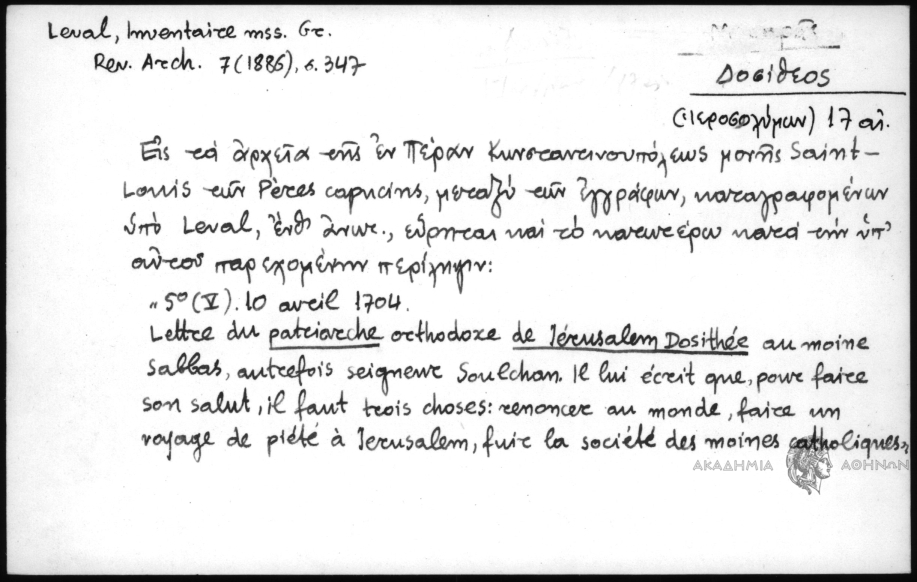 Leval, Inventaire mss. Gr.
Rev. Arch. 7 (1886), σ. 347
Δοσίθεος
(Ἱεροσολύμων) 17 αἰ.
Εἰς τὰ ἀρχεῖα τῆς ἐν Πέραν Κωνσταντινουπόλεως μονῆς Saint-
Louis τῶν Pères capucins, μεταξὺ τῶν ἐγγράφων, καταγραφομένων
ὑπὸ Leval, ἔνθ' ἀνωτ., εὕρηται καὶ τὸ κατωτέρω κατὰ τὴν ὑπ'
αὐτοῦ παρεχομένην περίληψιν:
"5° (V). 10 avril 1704.
Lettre du patriarche orthodoxe de Jérusalem Dosithée au moine
Sabbas, autrefois seigneur Soulchan. Il lui écrit que, pour faire
son salut, il faut trois choses: renoncer au monde, faire un
voyage de piété à Jerusalem, fuir la société des moines catholiques"
ΑΚΑΔΗΜΙΑ ΑΘΗΝΩΝ